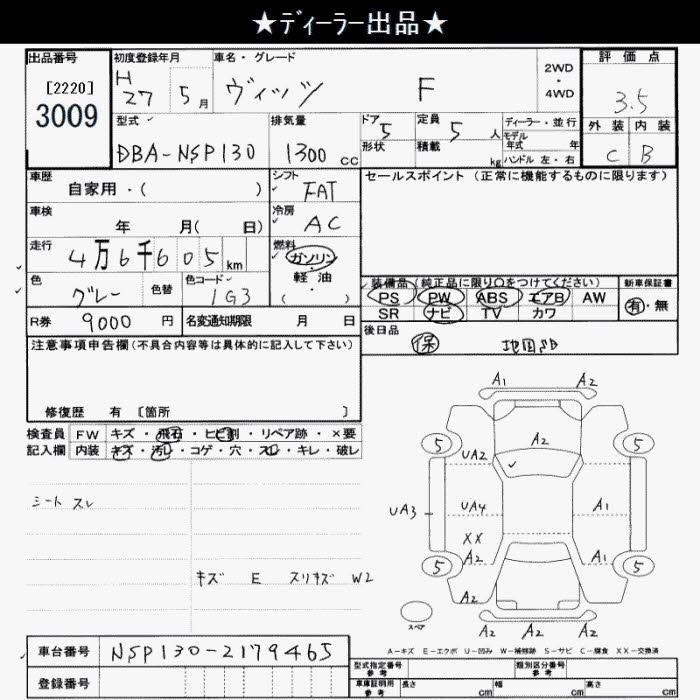 ★ディーラー出品★
出品番号 初度登録年月 車名・グレード 2WD・4WD 評価点
[2220] 3009 H27 5月 ヴィッツ F 3.5
型式 排気量 ドア 定員 ディーラー・並行 外装 内装
DBA-NSP130 1300 CC 5 5人 モデル年式 年 C B
形状 積載 kg ハンドル 左・右
車歴 シフト セールスポイント (正常に機能するものに限ります)
自家用・( ) FAT
車検 冷房
年 月( 日) AC
走行 燃料
4万6千605 km ガソリン・軽油・( )
色 色替 色コード 装備品(純正品に限り○をつけてください) 新車保証書
グレー 1G3 PS PW ABS エアB AW 有・無
SR ナビ TV カワ
R券 9000円 名変通知期限 月 日 後日品
保 地図SD
注意事項申告欄(不具合内容等は具体的に記入して下さい)
修復歴 有 [箇所 ]
検査員 FW キズ・飛石・ヒビ割・リペア跡・×要
記入欄 内装 キズ・汚レ・コゲ・穴・スレ・キレ・破レ
シート スレ
キズ E スリキズ W2
A1 A2
5 A2 5
UA2
UA3 UA4 A1
XX
A2 A1
5 5
A2
スペア
A2 A2 A2
A-キズ E-エクボ U-凹み W-補修跡 S-サビ C-腐食 XX-交換済
車台番号 NSP130-2179465
型式指定番号 参考 類別区分番号 参考
登録番号 車庫証明用 参考 長さ cm 幅 cm 高さ cm